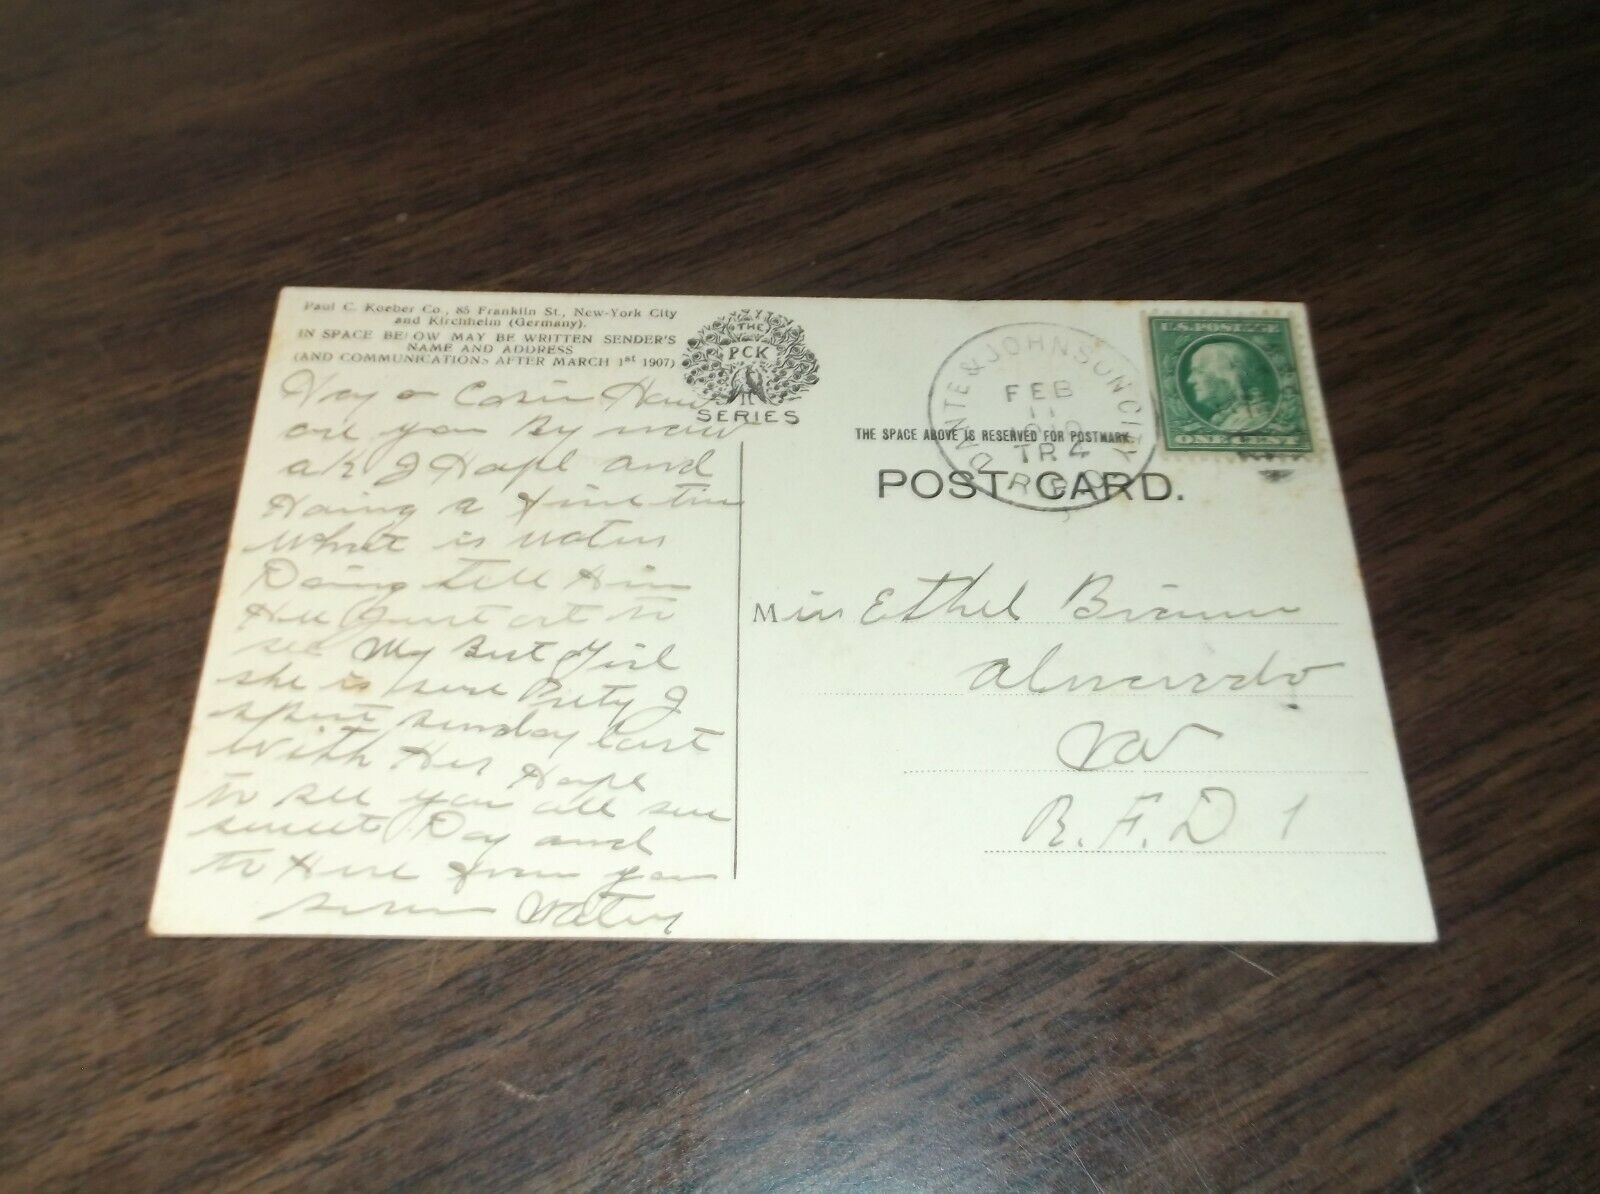 Paul C. Koeber Co., 85 Franklin St., New-York City
and Kirchheim (Germany).
IN SPACE BELOW MAY BE WRITTEN SENDER'S
NAME AND ADDRESS
(AND COMMUNICATIONS AFTER MARCH 1st 1907)
THE
PCK
SERIES
Cosin How
are you By now
and
Haing a Fine time
What is
Doing tell Him
He Just ort to
see My Best Girl
she is sure Prety I
spent sunday last
With Her Hope
to see you all sure
Day and
to Here From you
soon
DANTE & JOHNSON CITY
FEB
11
1910
TR 4
R.P.O.
U.S. POSTAGE
ONE CENT
THE SPACE ABOVE IS RESERVED FOR POSTMARK.
POST CARD.
Miss Ethel
Alvarado
Va
R.F.D 1